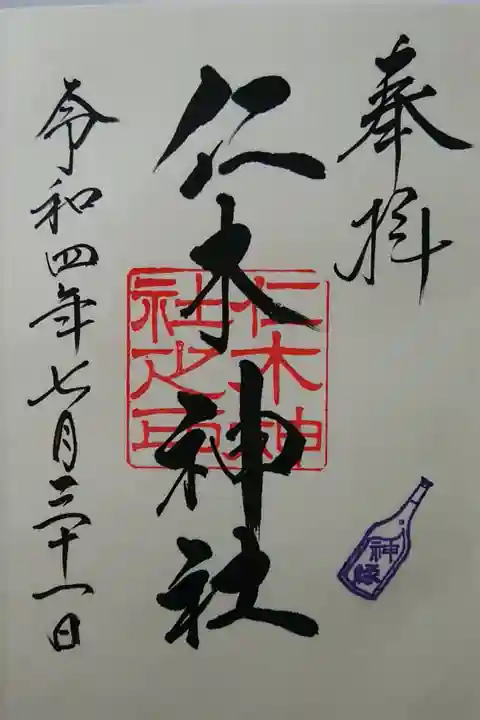 奉拝
仁木神社
仁木神
社之印
令和四年七月三十一日
神縁